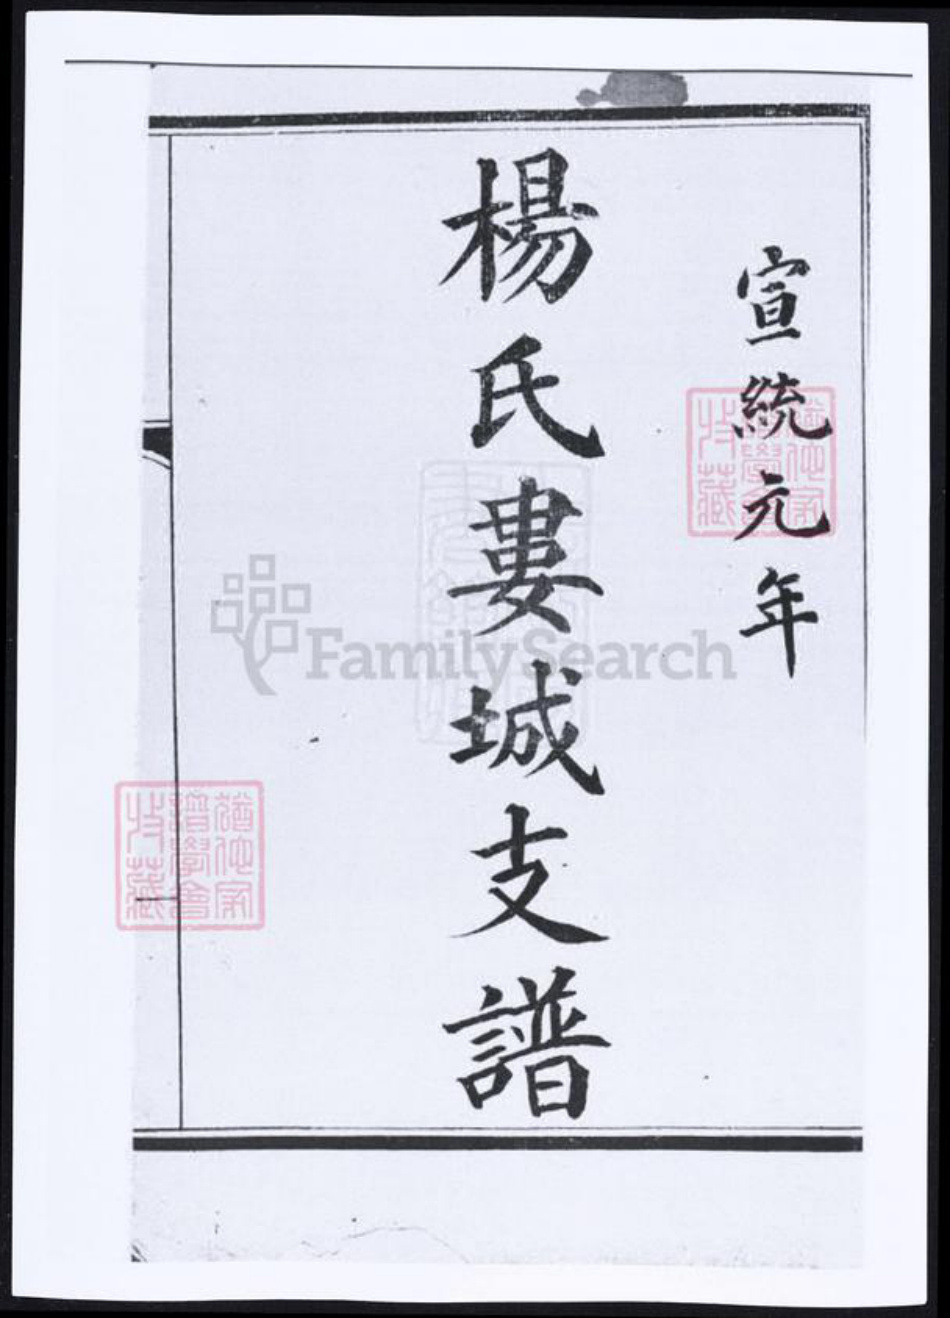 宣統元年
楊氏婁城支譜
FamilySearch